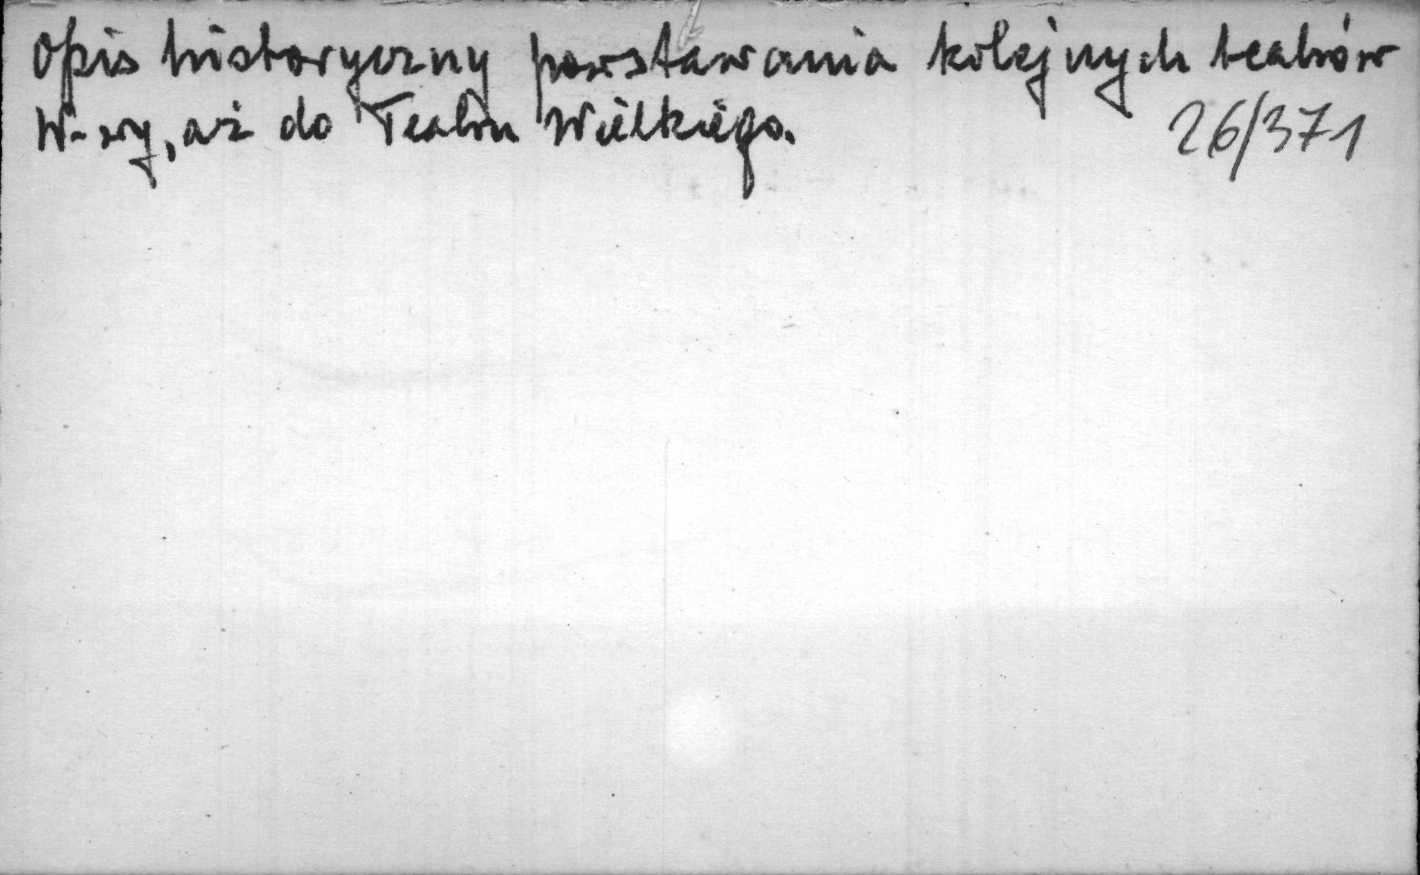 Opis historyczny powstawania kolejnych teatrów
W-wy, aż do Teatru Wielkiego.
26/371